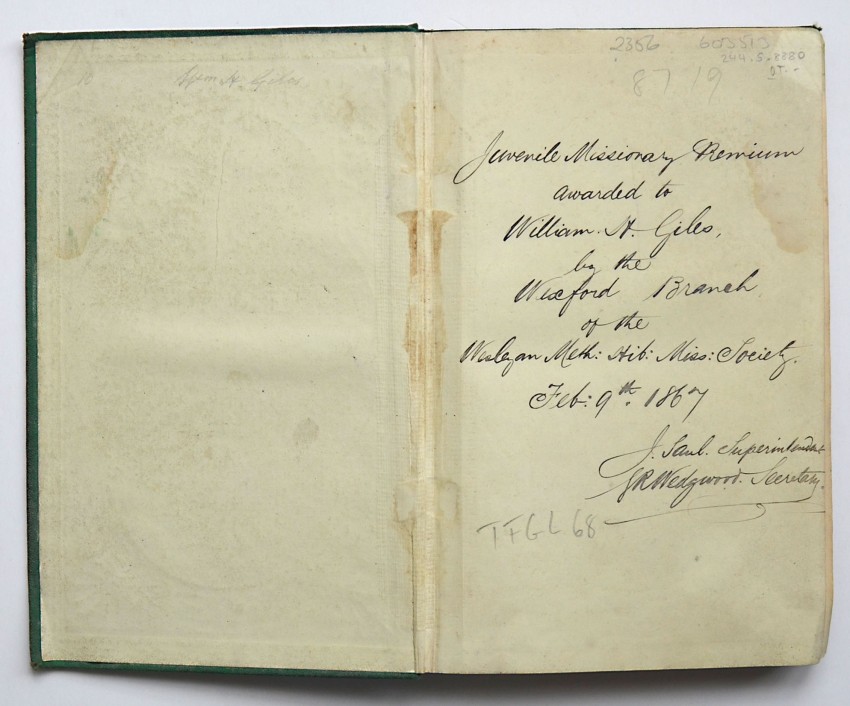 Wm H. Giles
2356
8719
Juvenile Missionary Premium
awarded to
William. H. Giles,
by the
Wexford Branch
of the
Wesleyan Meth: Hib: Miss: Society.
Feb: 9th. 1867
J. Saul. Superintendent
GRWedgwood. Secretary.
TFGL 68